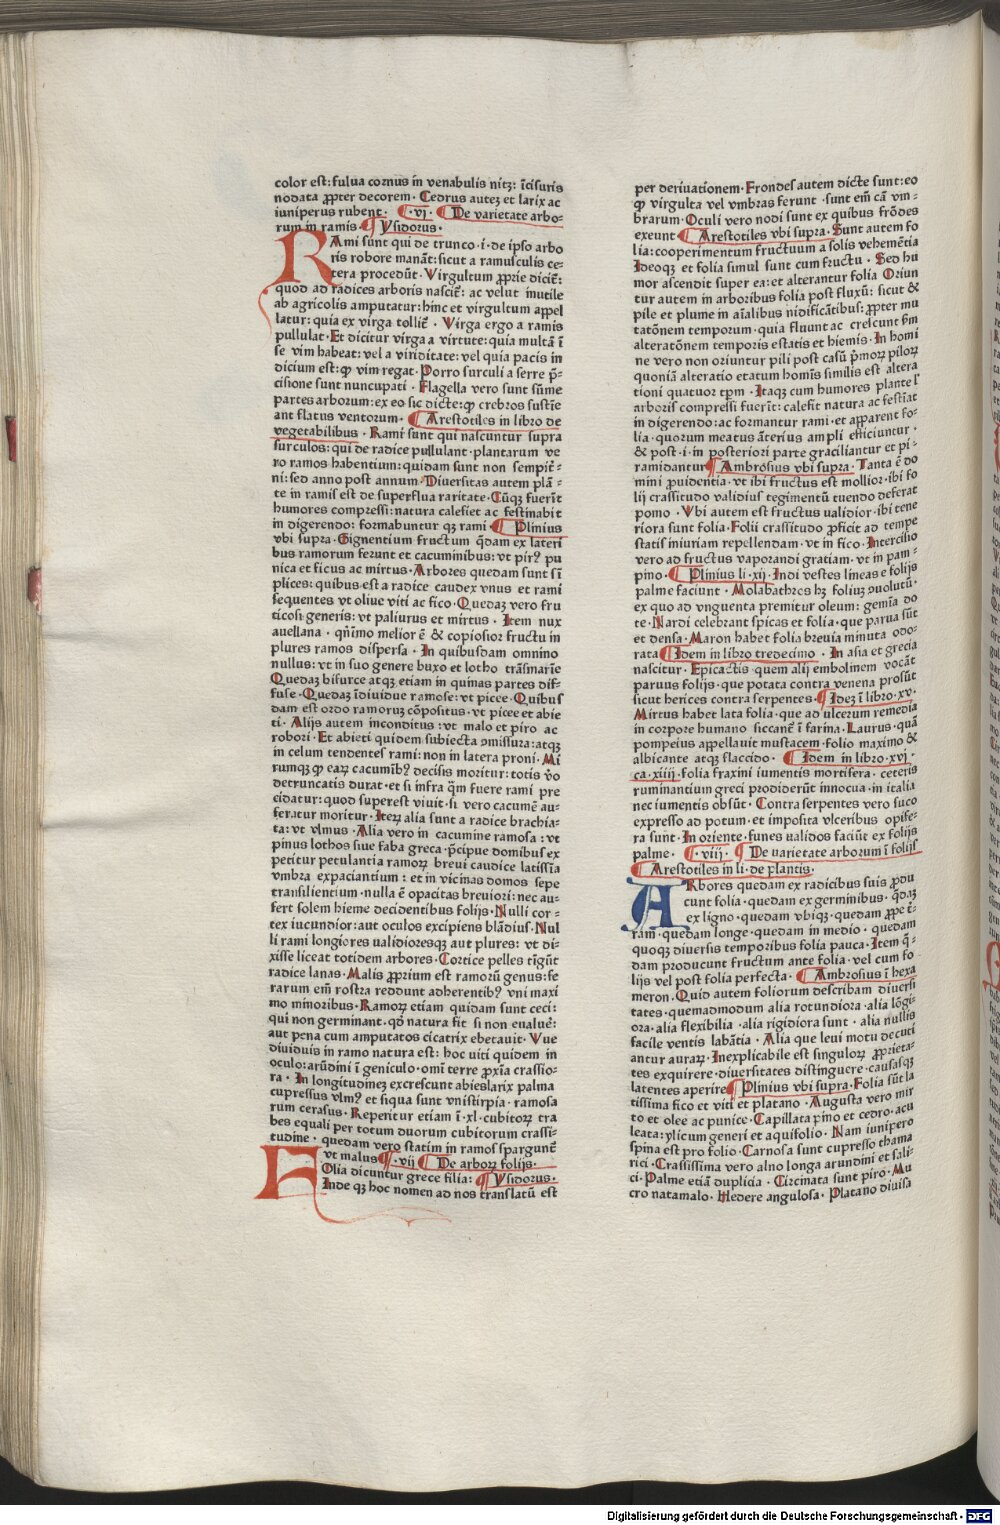 color est: fulua cornus in venabulis nitꝫ: īcisuris
nodata ꝓpter decorem · Cedrus auteꝫ et larix ac
iuniperus rubent · ¶ · vi · ¶ De varietate arbo-
rum in ramis · ¶ Ysidorus ·
RAmi sunt qui de trunco · i · de ipso arbo
ris robore manāt: sicut a ramusculis ce-
tera procedūt · Virgultum ꝓprie dicit᷑:
quod ad radices arboris nascit᷑: ac velut inutile
ab agricolis amputatur: hinc et virgultum appel
latur: quia ex virga tollit᷑ · Virga ergo a ramis
pullulat · Et dicitur virga a virtute: quia multā ī
se vim habeat: vel a viriditate: vel quia pacis in
dicium est: ꝙ vim regat · Porro surculi a serre p̄-
cisione sunt nuncupati · Flagella vero sunt sūme
partes arborum: ex eo sic dicte: ꝙ crebros sustīe
ant flatus ventorum · ¶ Arestotiles in libro de
vegetabilibus · Rami sunt qui nascuntur supra
surculos: qui de radice pullulant · plantarum ve
ro ramos habentium: quidam sunt non sempit᷑-
ni: sed anno post annum · Diuersitas autem plā-
te in ramis est de superflua raritate · Cūqꝫ fuerīt
humores compressi: natura calefiet ac festinabit
in digerendo: formabuntur qꝫ rami · ¶ Plinius
vbi supra · Gignentium fructum q̄dam ex lateri
bus ramorum ferunt et cacuminibus: vt pirꝰ pu
nica et ficus ac mirtus · Arbores quedam sunt sī
plices: quibus est a radice caudex vnus et rami
frequentes vt oliue viti ac fico · Quedaꝫ vero fru
ticosi generis: vt paliurus et mirtus · Item nux
auellana · qn̄imo melior ē & copiosior fructu in
plures ramos dispersa · In quibusdam omnino
nullus: vt in suo genere buxo et lotho trāsmarīe
Quedaꝫ bisurce atqꝫ etiam in quinas partes dif-
fuse · Quedaꝫ īdiuidue ramose: vt picee · Quibus
dam est ordo ramoruꝫ cōpositus · vt picee et abie
ti · Alijs autem inconditus: vt malo et piro ac
robori · Et abieti quidem subiecta ꝯmissura: atqꝫ
in celum tendentes rami: non in latera proni · Mi
rumqꝫ ꝙ eaꝝ cacumībꝰ decisis moritur: totis v̄o
detruncatis durat · et si infra q̄m fuere rami pre
cidatur: quod superest viuit · si vero cacumē au-
feratur moritur · Iteꝫ alia sunt a radice brachia-
ta: vt vlmus · Alia vero in cacumine ramosa: vt
pinus lothos siue faba greca · p̄cipue domibus ex
petitur petulantia ramoꝝ breui caudice latissīa
vmbra expaciantium: et in vicinas domos sepe
transilientium · nulla ē opacitas breuiori: nec au-
fert solem hieme decidentibus folijs · Nulli cor-
tex iucundior: aut oculos excipiens blādius · Nul
li rami longiores ualidioresqꝫ aut plures: vt di-
xisse liceat totidem arbores · Cortice pelles tīgūt
radice lanas · Malis ꝓprium est ramorū genus: fe
rarum em̄ rostra reddunt adherentibꝰ vni maxi
mo minoribus · Ramoꝝ etiam quidam sunt ceci:
qui non germinant · qd̄ natura fit si non eualue᷑:
aut pena cum amputatos cicatrix ebetauit · Vue
diuiduis in ramo natura est: hoc uiti quidem in
oculo: arūdini ī geniculo · om̄i terre ꝓxīa crassio-
ra · In longitudineꝫ excrescunt abies larix palma
cupressus vlmꝰ et siqua sunt vnistirpia · ramosa
rum cerasus · Reperitur etiam ī · xl · cubitoꝝ tra
bes equali per totum duorum cubitorum crassi-
tudine · quedam vero statim in ramos spargunt᷑
vt malus ¶ · vij ¶ De arboꝝ folijs ·
FOlia dicuntur grece filia: ¶ Ysidorus ·
Inde qꝫ hoc nomen ad nos translatū est
per deriuationem · Frondes autem dicte sunt: eo
ꝙ virgulta vel vmbras ferunt · sunt em̄ cā vm-
brarum · Oculi vero nodi sunt ex quibus frōdes
exeunt ¶ Arestotiles vbi supra · Sunt autem fo
lia: cooperimentum fructuum a solis vehemētia
Ideoqꝫ et folia simul sunt cum fructu · Sed hu
mor ascendit super ea: et alterantur folia Oriun
tur autem in arboribus folia post fluxū: sicut &
pile et plume in aīalibus nidificātibus: ꝓpter mu
tatōnem temporum · quia fluunt ac crescunt ẜm
alteratōnem temporis estatis et hiemis · In homi
ne vero non oriuntur pili post casū p̄moꝝ piloꝝ
quoniā alteratio etatum homīs similis est altera
tioni quatuor tꝑm · Itaqꝫ cum humores plante l᷑
arboris compressi fuerīt: calefit natura ac festīat
in digerendo: ac formantur rami · et apparent fo-
lia · quorum meatus āterius ampli efficiuntur ·
& post · i · in posteriori parte graciliantur et pi-
ramidantur ¶ Ambrosius vbi supra · Tanta ē do
mini ꝓuidentia · vt ibi fructus est mollior · ibi fo
lij crassitudo validius tegimentū tuendo deferat
pomo · Vbi autem est fructus ualidior · ibi tene
riora sunt folia · Folii crassitudo ꝓficit ad tempe
statis iniuriam repellendam · vt in fico · Intercisio
vero ad fructus vaporandi gratiam · vt in pam-
pino · ¶ Plinius li · xij · Indi vestes līneas e folijs
palme faciunt · Molabathres hꝫ foliuꝫ ꝯuolutū ·
ex quo ad vnguenta premitur oleum: gemīa do
te · Nardi celebrant spicas et folia · que parua sūt
et densa · Maron habet folia breuia minuta odo-
rata ¶ Idem in libro tredecimo · In asia et grecia
nascitur · Epicactis quem alij embolinem vocāt
paruus folijs · que potata contra venena prosūt
sicut herices contra serpentes · ¶ Ideꝫ ī libro · xv ·
Mirtus habet lata folia · que ad ulcerum remedia
in corpore humano siccant᷑ ī farina · Laurus · quā
pompeius appellauit mustacem · folio maximo &
albicante atqꝫ flaccido · ¶ Idem in libro · xvj ·
ca · xiiij · folia fraxini iumentis mortifera · ceteris
ruminantium greci prodiderūt innocua · in italia
nec iumentis obsūt · Contra serpentes vero suco
expresso ad potum · et imposita vlceribus opife-
ra sunt · In oriente · funes ualidos faciūt ex folijs
palme · ¶ · viij · ¶ De varietate arborum ī folijs
¶ Arestotiles in li · de plantis ·
ARbores quedam ex radicibus suis ꝓdu
cunt folia · quedam ex germinibus · q̄daꝫ
ex ligno · quedam vbiqꝫ · quedam ꝓpe t᷑-
ram · quedam longe · quedam in medio · quedam
quoqꝫ diuersis temporibus folia pauca · Item q̄-
dam producunt fructum ante folia · vel cum fo
lijs vel post folia perfecta · ¶ Ambrosius ī hexa
meron · Quid autem foliorum describam diuersi
tates · quemadmodum alia rotundiora · alia lōgi-
ora · alia flexibilia · alia rigidiora sunt · alia nullis
facile ventis labātia · Alia que leui motu decuti
antur auraꝝ · Inexplicabile est singuloꝝ ꝓprieta-
tes exquirere · diuersitates distinguere · causasqꝫ
latentes aperire ¶ Plinius vbi supra · Folia sūt la
tissima fico et viti et platano · Augusta vero mir
to et olee ac punice · Capillata pino et cedro · acu
leata: ylicum generi et aquifolio · Nam iunipero
spina est pro folio · Carnosa sunt cupresso thama
rici · Crassissima vero alno longa arundini et sali-
ci · Palme etiā duplicia · Circinata sunt piro · Mu
cro natamalo · Hedere angulosa · Platano diuisa
Digitalisierung gefördert durch die Deutsche Forschungsgemeinschaft - DFG